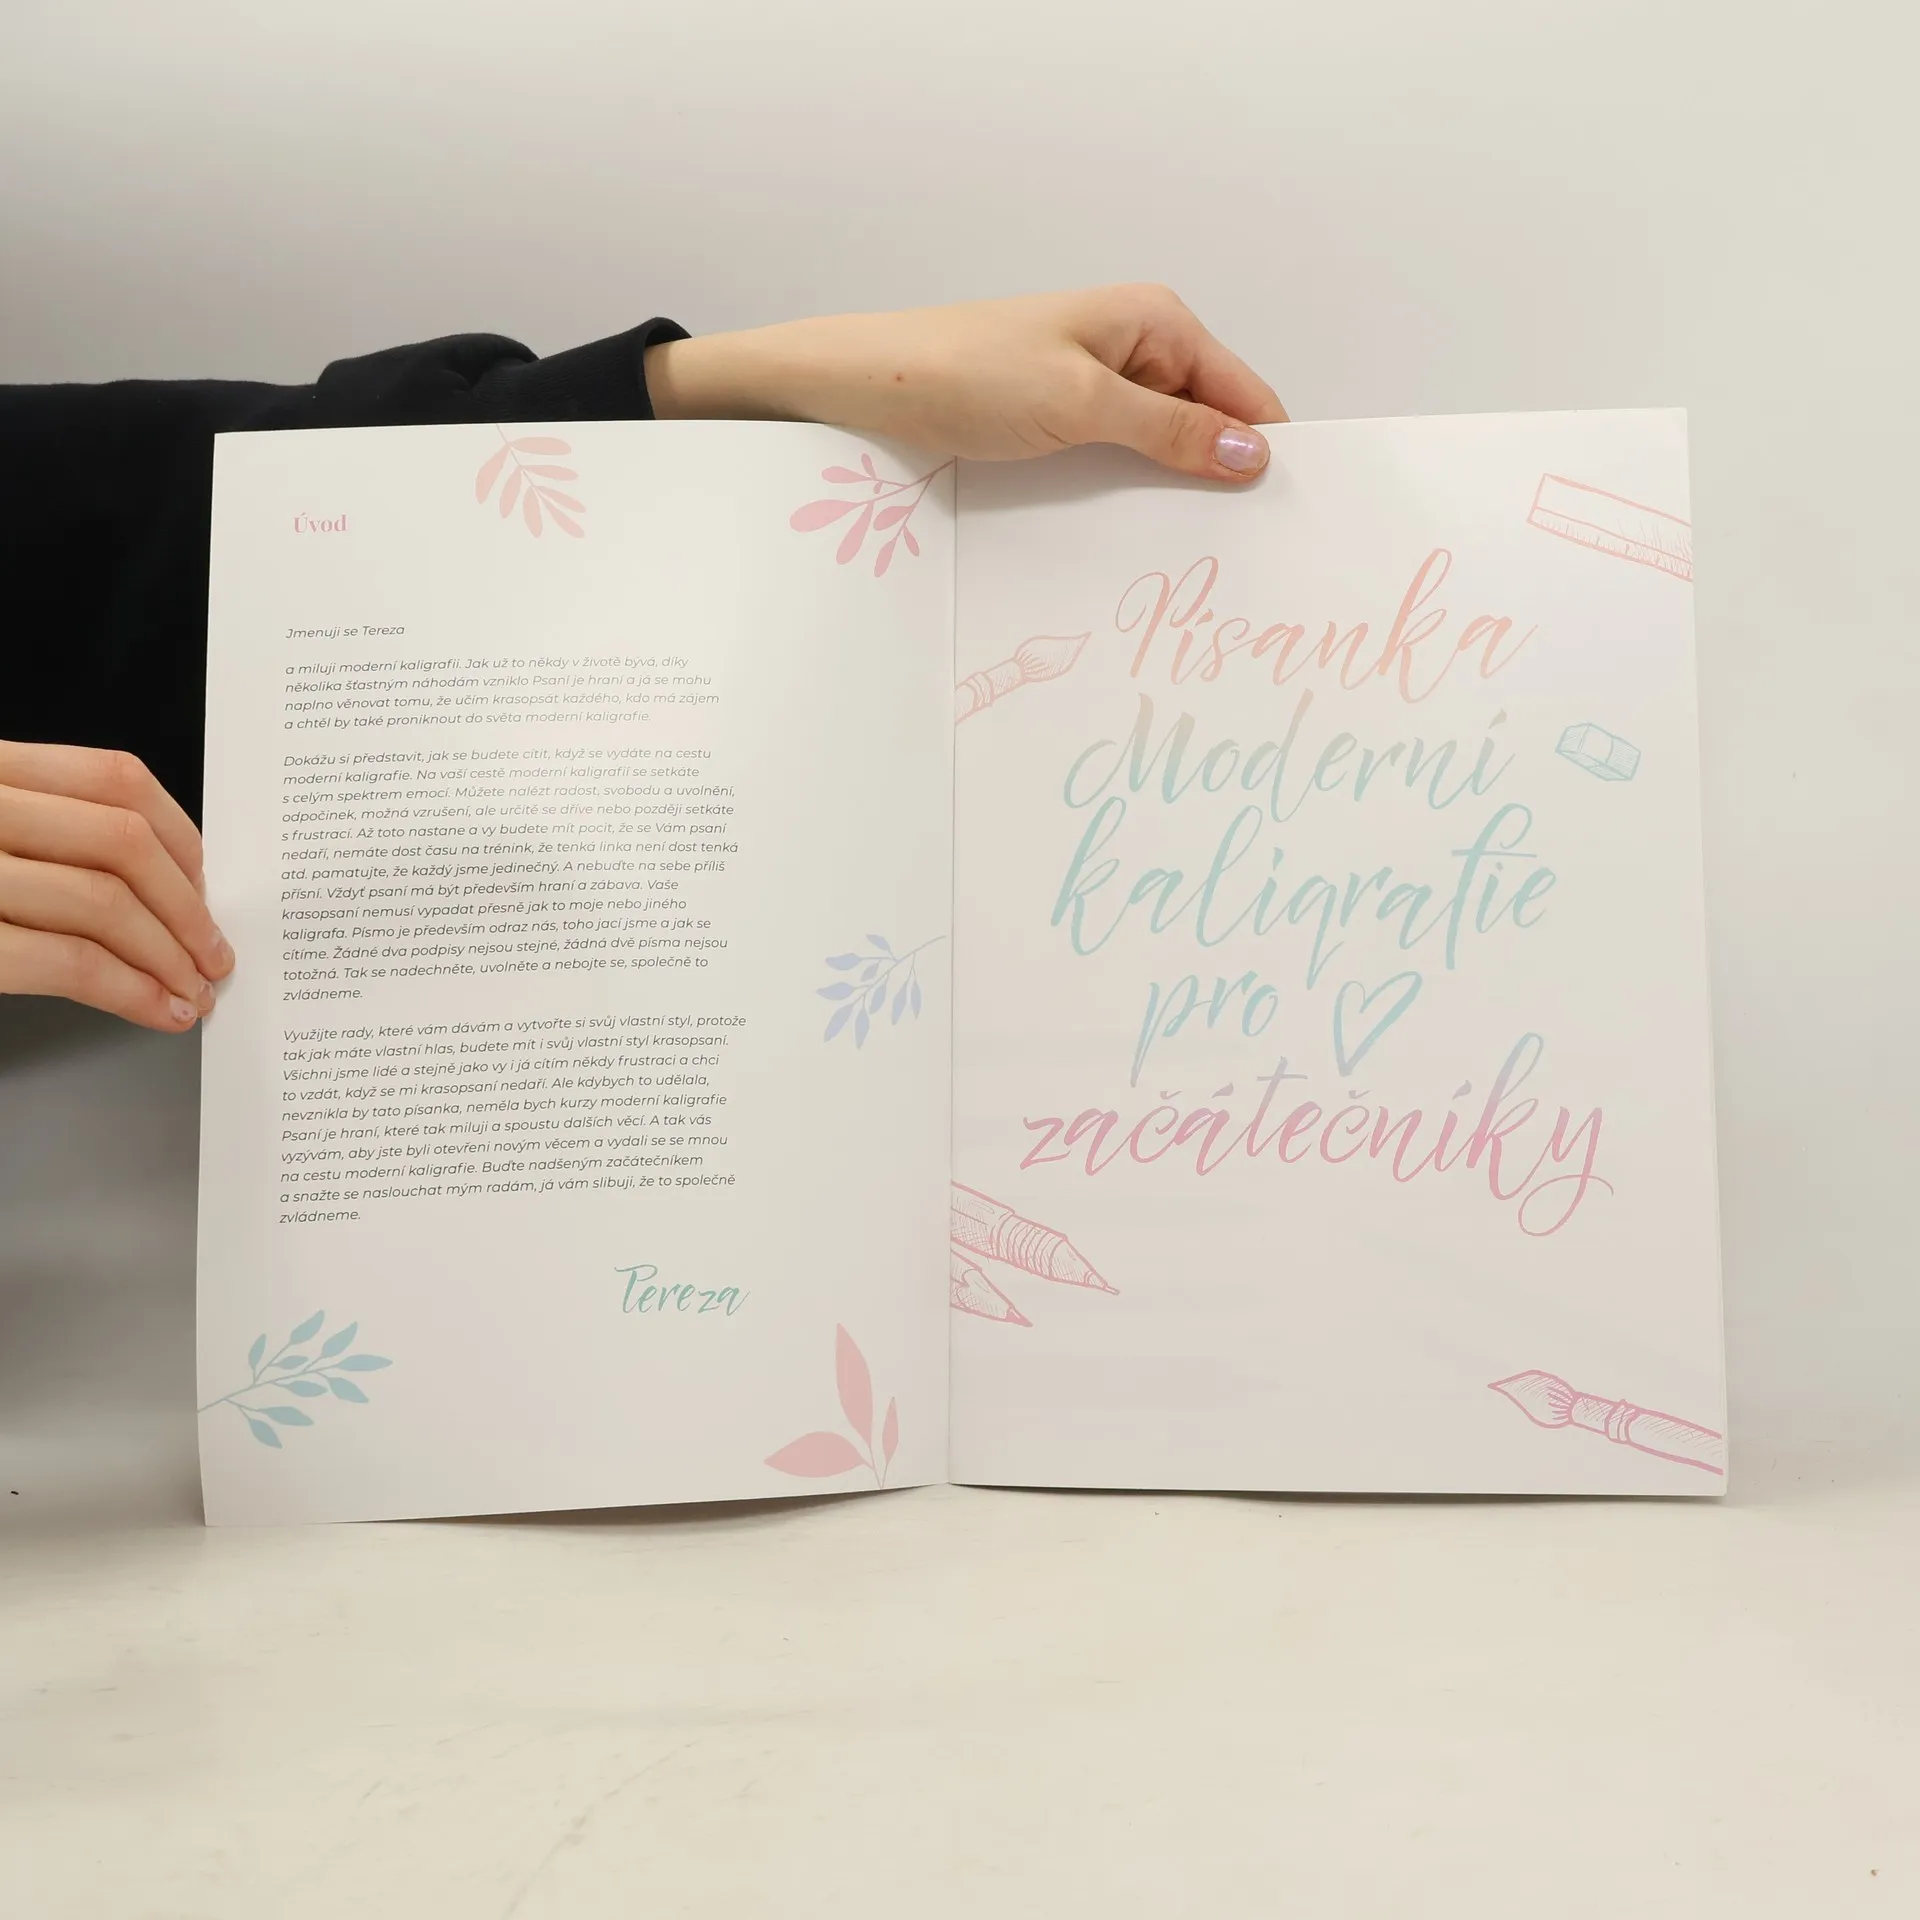 Úvod
Jmenuji se Tereza
a miluji moderní kaligrafii. Jak už to někdy v životě bývá, díky
několika šťastným náhodám vzniklo Psaní je hraní a já se mohu
naplno věnovat tomu, že učím krasopsát každého, kdo má zájem
a chtěl by také proniknout do světa moderní kaligrafie.
Dokážu si představit, jak se budete cítit, když se vydáte na cestu
moderní kaligrafie. Na vaší cestě moderní kaligrafií se setkáte
s celým spektrem emocí. Můžete nalézt radost, svobodu a uvolnění,
odpočinek, možná vzrušení, ale určitě se dříve nebo později setkáte
s frustrací. Až toto nastane a vy budete mít pocit, že se Vám psaní
nedaří, nemáte dost času na trénink, že tenká linka není dost tenká
atd. pamatujte, že každý jsme jedinečný. A nebuďte na sebe příliš
přísní. Vždyť psaní má být především hraní a zábava. Vaše
krasopsaní nemusí vypadat přesně jak to moje nebo jiného
kaligrafa. Písmo je především odraz nás, toho jací jsme a jak se
cítíme. Žádné dva podpisy nejsou stejné, žádná dvě písma nejsou
totožná. Tak se nadechněte, uvolněte a nebojte se, společně to
zvládneme.
Využijte rady, které vám dávám a vytvořte si svůj vlastní styl, protože
tak jak máte vlastní hlas, budete mít i svůj vlastní styl krasopsaní.
Všichni jsme lidé a stejně jako vy i já cítím někdy frustraci a chci
to vzdát, když se mi krasopsaní nedaří. Ale kdybych to udělala,
nevznikla by tato písanka, neměla bych kurzy moderní kaligrafie
Psaní je hraní, které tak miluji a spoustu dalších věcí. A tak vás
vyzývám, aby jste byli otevřeni novým věcem a vydali se se mnou
na cestu moderní kaligrafie. Buďte nadšeným začátečníkem
a snažte se naslouchat mým radám, já vám slibuji, že to společně
zvládneme.
Tereza
Písanka
Moderní
kaligrafie
pro
začátečníky